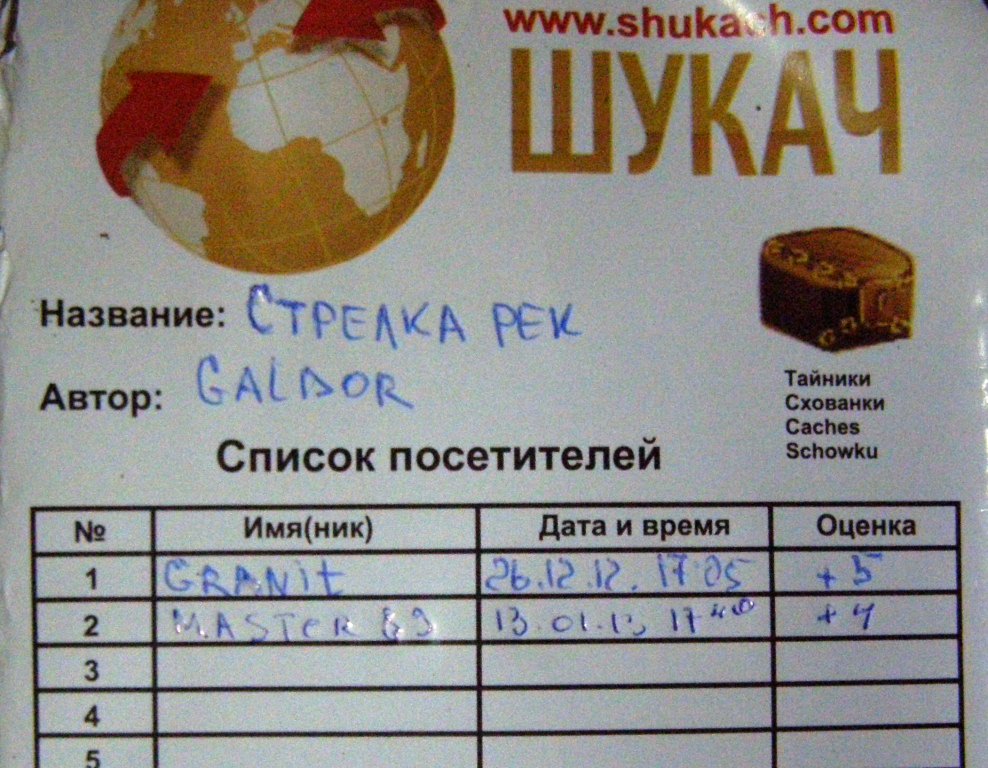 www.shukach.com
ШУКАЧ
Название: СТРЕЛКА РЕК
Автор: GALDOR
Тайники
Схованки
Caches
Schowku
Список посетителей
№ Имя(ник) Дата и время Оценка
1 GRANIT 26.12.12. 17:05 +5
2 MASTER 69 13.01.13 17 40 +4
3
4
5